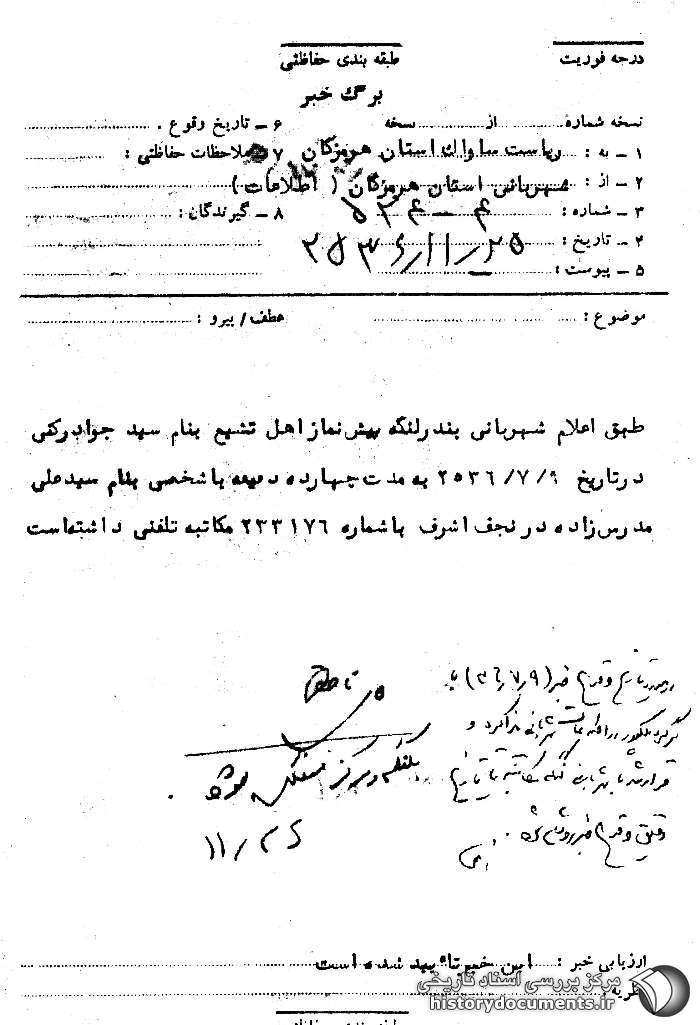 درجه فوریت
طبقه بندی حفاظتی
برگ خبر
نسخه شماره ........ از ........ نسخه
۶ ـ تاریخ وقوع .
۱ ـ به : ریاست ساواک استان هرمزگان
۷ ـ ملاحظات حفاظتی :
۲ ـ از : شهربانی استان هرمزگان ( اطلاعات )
۳ ـ شماره :
۸ ـ گیرندگان :
۴ ـ تاریخ : ۲۵/۱۱/۲۵۳۶
۵ ـ پیوست :
موضوع :
عطف / پیرو :
طبق اعلام شهربانی بندرلنگه پیش نماز اهل تشیع بنام سید جواد رکنی
درتاریخ ۲۵۳۶/۷/۹ به مدت چهارده دقیقه با شخصی بنام سیدعلی
مدرس زاده در نجف اشرف باشماره ۲۳۳۱۷۶ مکاتبه تلفنی داشته است
وقوع خبر (۳۶/۷/۹) با
دقیق وقوع خبر روشن شود .
۱۱/۲۶
ارزیابی خبر : این خبر تائید شده است
نظریه
مرکز بررسی اسناد تاریخی
historydocuments.ir